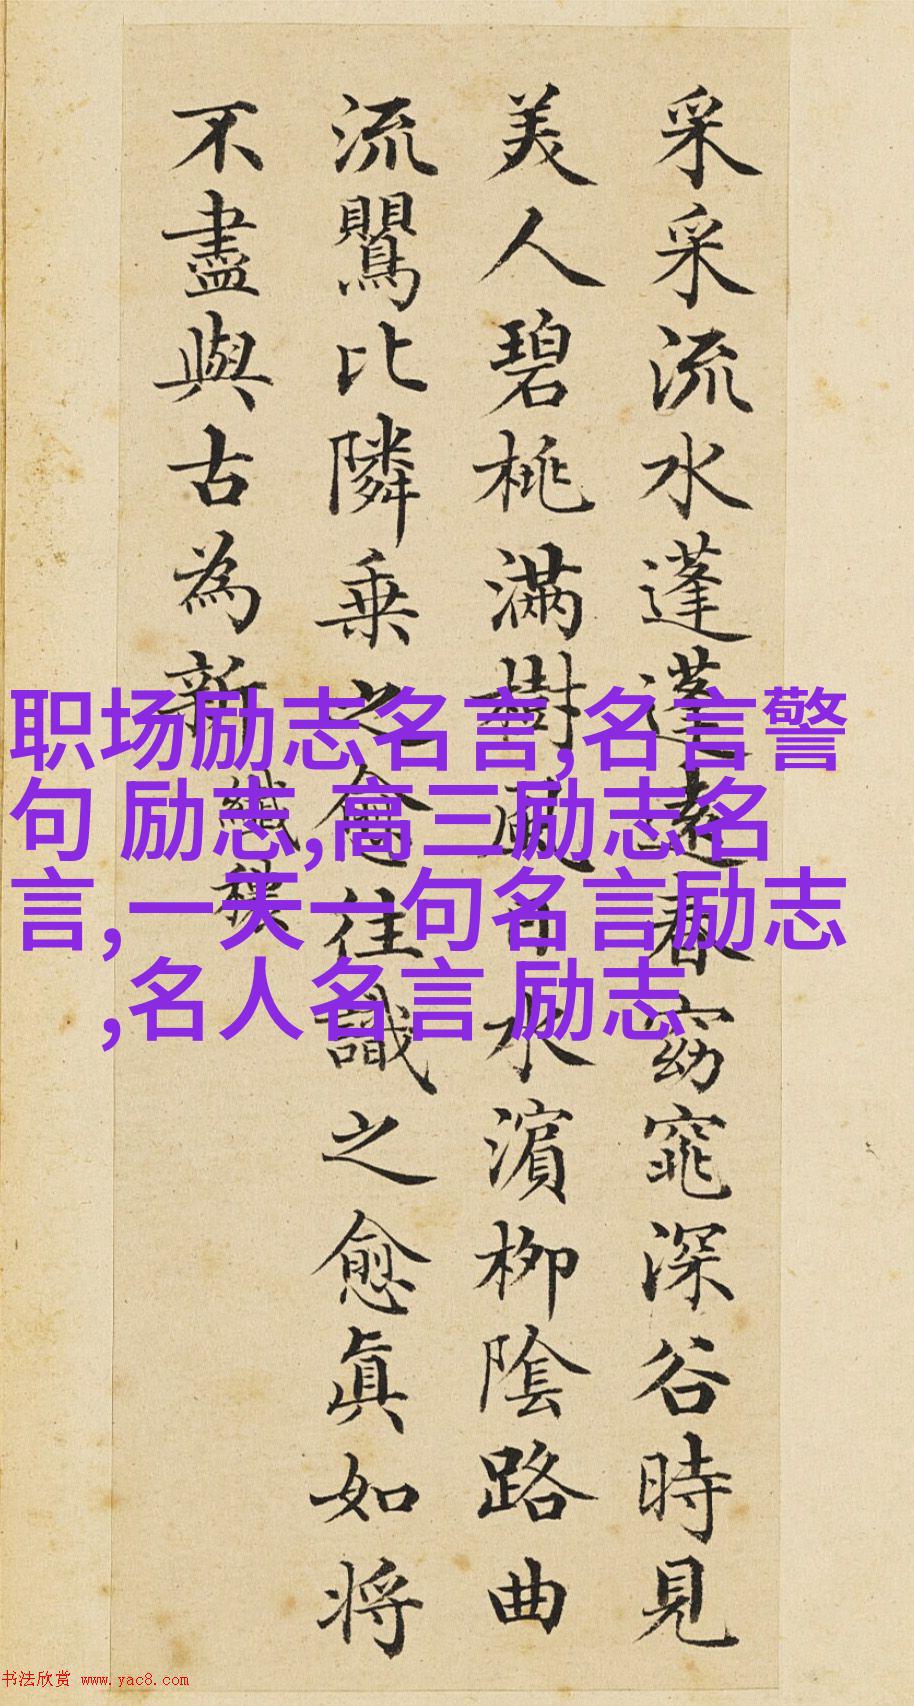 采采流水蓬蓬遠春窈窕深谷時見
美人碧桃滿樹風日水濱柳陰路曲
流鸎比隣乗之愈往識之愈眞如将
不盡與古為新 纖穠
职场励志名言,名言警
句 励志,高三励志名
言,一天一句名言励志
,名人名言 励志
书法欣赏 www.yac8.com